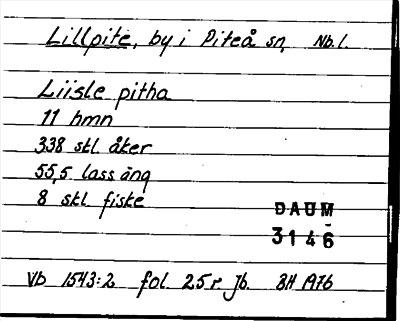 Lillpite, by i Piteå sn, Nb.l.
Liisle pitha
11 hmn
338 skl åker
55,5 lass äng
8 skl fiske
DAUM
3146
Vb 1543:2 fol. 25 r Jb. BH 1976